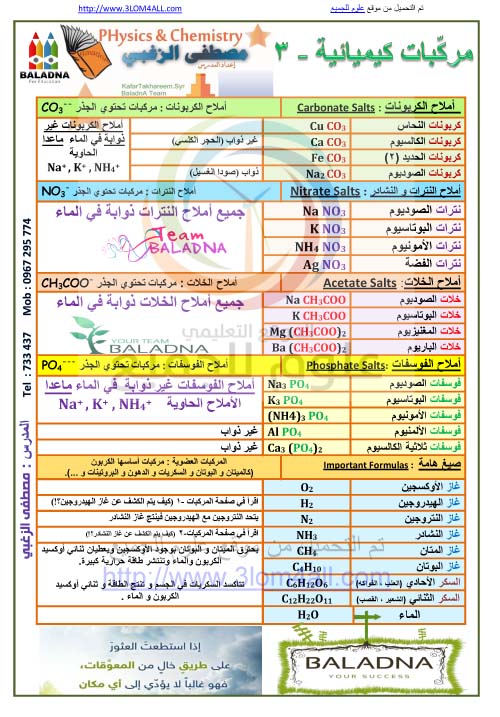 http://www.3LOM4ALL.com
تم التحميل من موقع علوم للجميع
BALADNA
For Education
PHysics & Chemistry
مصطفى الزغبي
إعداد المدرس
KafarTakhareem.Syr
BaladnA Team
مركّبات كيميائية - ٣
أملاح الكربونات : Carbonate Salts
أملاح الكربونات : مركبات تحتوي الجذر CO₃⁻⁻
كربونات النحاس Cu CO₃
كربونات الكالسيوم Ca CO₃ غير ذواب (الحجر الكلسي)
كربونات الحديد (٢) Fe CO₃
كربونات الصوديوم Na₂ CO₃ ذواب (صودا الغسيل)
أملاح الكربونات غير
ذوابة في الماء ماعدا
الحاوية
Na⁺, K⁺ , NH₄⁺
أملاح النترات و النشادر : Nitrate Salts
أملاح النترات : مركبات تحتوي الجذر NO₃⁻
نترات الصوديوم Na NO₃
نترات البوتاسيوم K NO₃
نترات الأمونيوم NH₄ NO₃
نترات الفضة Ag NO₃
جميع أملاح النترات ذوابة في الماء
Team
BALADNA
أملاح الخلات: Acetate Salts
أملاح الخلات : مركبات تحتوي الجذر CH₃COO⁻
خلات الصوديوم Na CH₃COO
خلات البوتاسيوم K CH₃COO
خلات المغنيزيوم Mg (CH₃COO)₂
خلات الباريوم Ba (CH₃COO)₂
جميع أملاح الخلات ذوابة في الماء
YOUR TEAM
BALADNA
أملاح الفوسفات: Phosphate Salts
أملاح الفوسفات : مركبات تحتوي الجذر PO₄⁻⁻⁻
فوسفات الصوديوم Na₃ PO₄
فوسفات البوتاسيوم K₃ PO₄
فوسفات الأمونيوم (NH4)₃ PO₄
فوسفات الألمنيوم Al PO₄ غير ذواب
فوسفات ثلاثية الكالسيوم Ca₃ (PO₄)₂ غير ذواب
أملاح الفوسفات غير ذوابة في الماء ماعدا
الأملاح الحاوية Na⁺, K⁺ , NH₄⁺
صيغ هامة : Important Formulas
المركبات العضوية : مركبات أساسها الكربون
(كالميتان و البوتان و السكريات و الدهون و البروتينات و ...).
غاز الأوكسجين O₂
غاز الهيدروجين H₂ اقرأ في صفحة المركبات -١ (كيف يتم الكشف عن غاز الهيدروجين؟!)
غاز النتروجين N₂ يتحد النتروجين مع الهيدروجين فينتج غاز النشادر
غاز النشادر NH₃ اقرأ في صفحة المركبات-٢ (كيف يتم الكشف عن غاز النشادر؟!)
غاز المتان CH₄
غاز البوتان C₄H₁₀
يحترق الميتان و البوتان بوجود الأوكسجين ويعطيان ثنائي أوكسيد
الكربون والماء وتنتشر طاقة حرارية كبيرة.
السكر الأحادي (العنب ، الفواكه) C₆H₁₂O₆
السكر الثنائي (الشمندر ، القصب) C₁₂H₂₂O₁₁
تتأكسد السكريات في الجسم و تنتج الطاقة و ثنائي أوكسيد
الكربون و الماء .
الماء H₂O
المدرس : مصطفى الزغبي Tel : 733 437 Mob : 0967 295 774
تم التحميل من موقع
http://www.3lom4all.com
إذا استطعتَ العثورَ
على طريقٍ خالٍ من المعوّقات،
فهو غالباً لا يؤدّي إلى أي مكان
BALADNA
YOUR SUCCESS